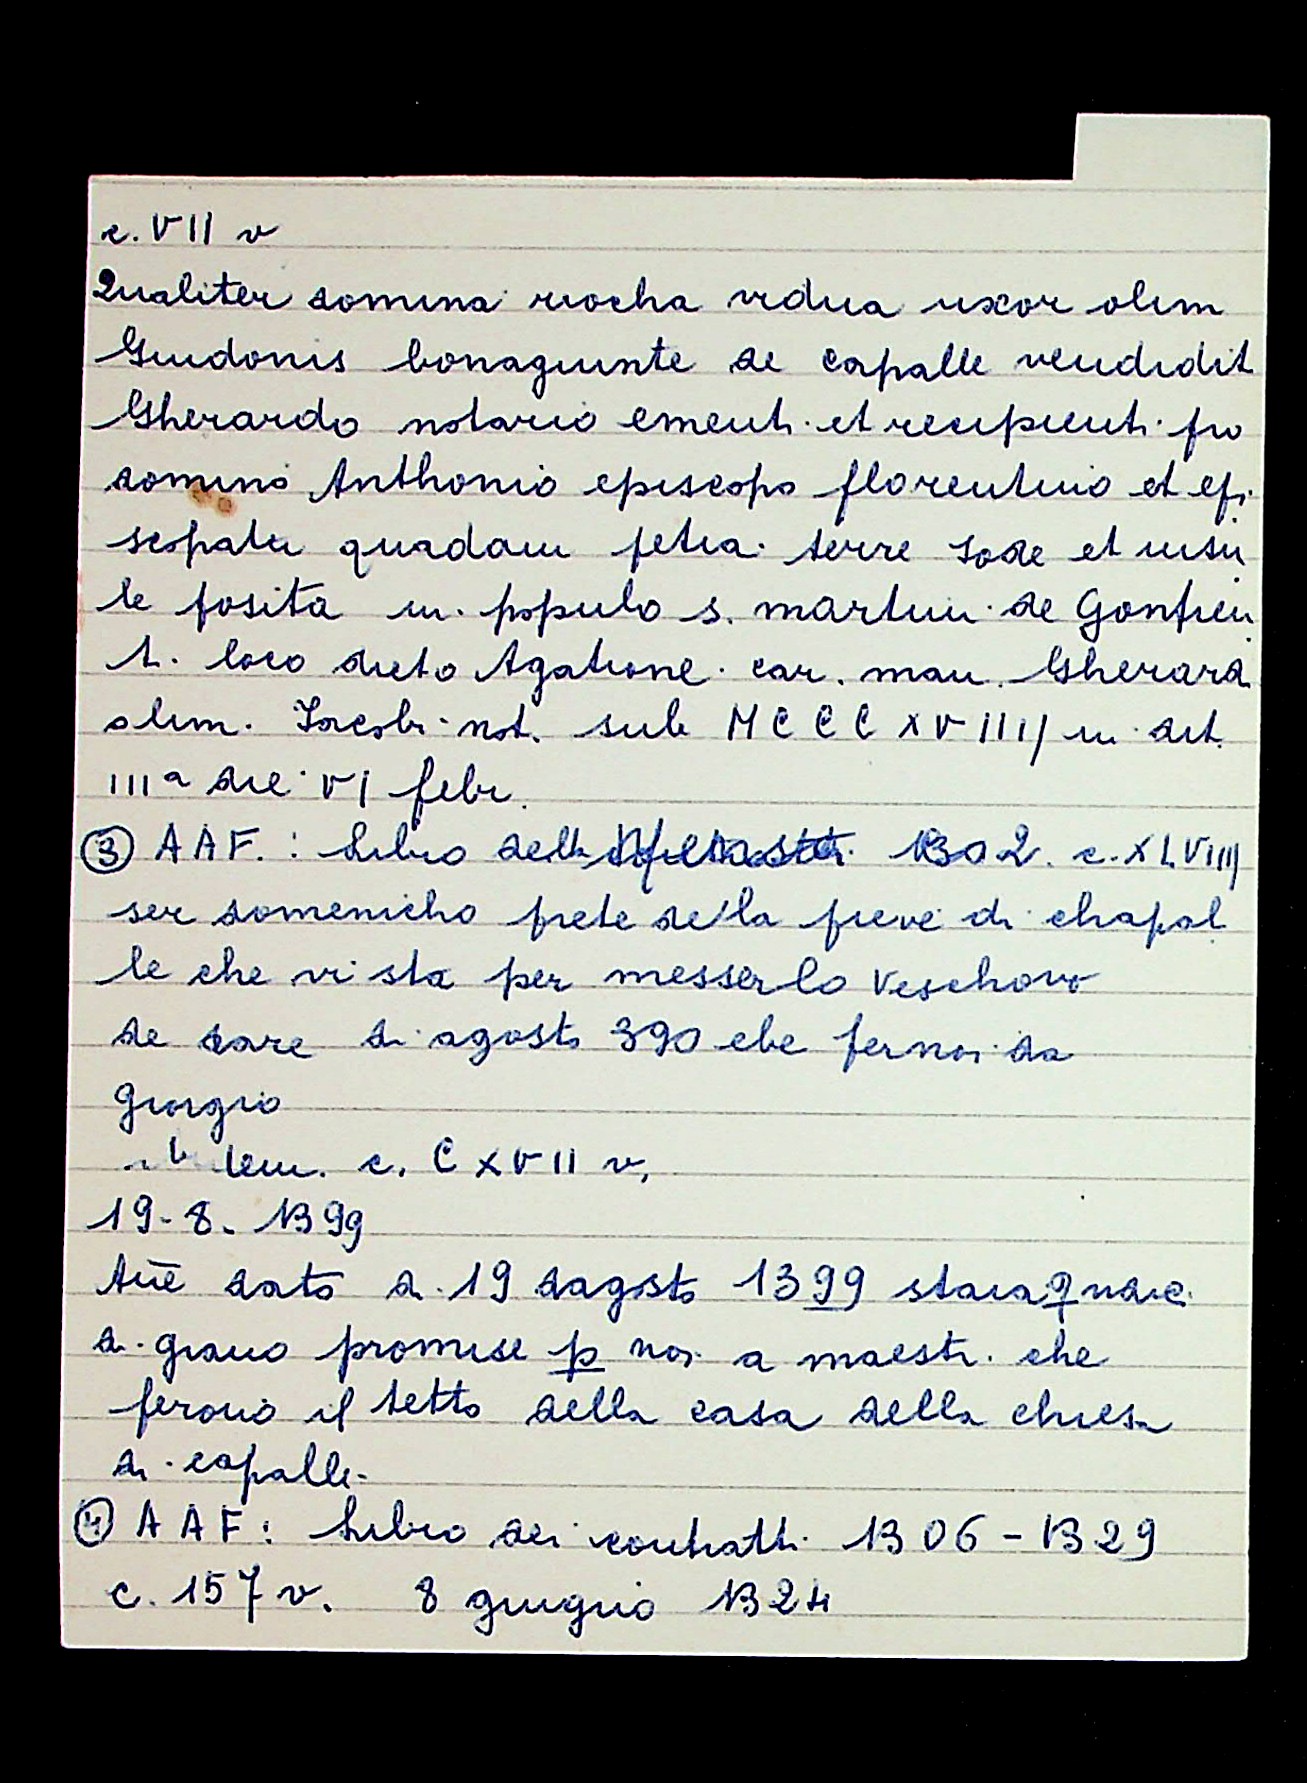 c. VII v
Qualiter domina riocha vidua uxor olim
Guidonis bonagiunte de capalle vendidit
Gherardo notario ementi et recipienti pro
domino Anthonio episcopo florentino et epi
scopatu quadam petia terre sode et insu
le posita in populo s. martini de Gonfien
ti. loco dicto Agatione. car. man. Gherardi
olim. Iacobi not. sub MCCCXVIIII in dit.
IIIª die VI febr.
③ AAF.: Libro delle 1302. c. XLVIIII
ser domenicho prete de la pieve di chapal
le che vi sta per messer lo veschovo
de dare di agosto 390 ebe per noi da
giorgio
ibidem. c. CXVII v.
19-8. 1399
Anē dato di 19 dagosto 1399 staia
di grano promise p noi a maestri che
ferono il tetto della casa della chiesa
di capalle.
④ AAF: Libro dei contratti 1306-1329
c. 157 v. 8 giugno 1324